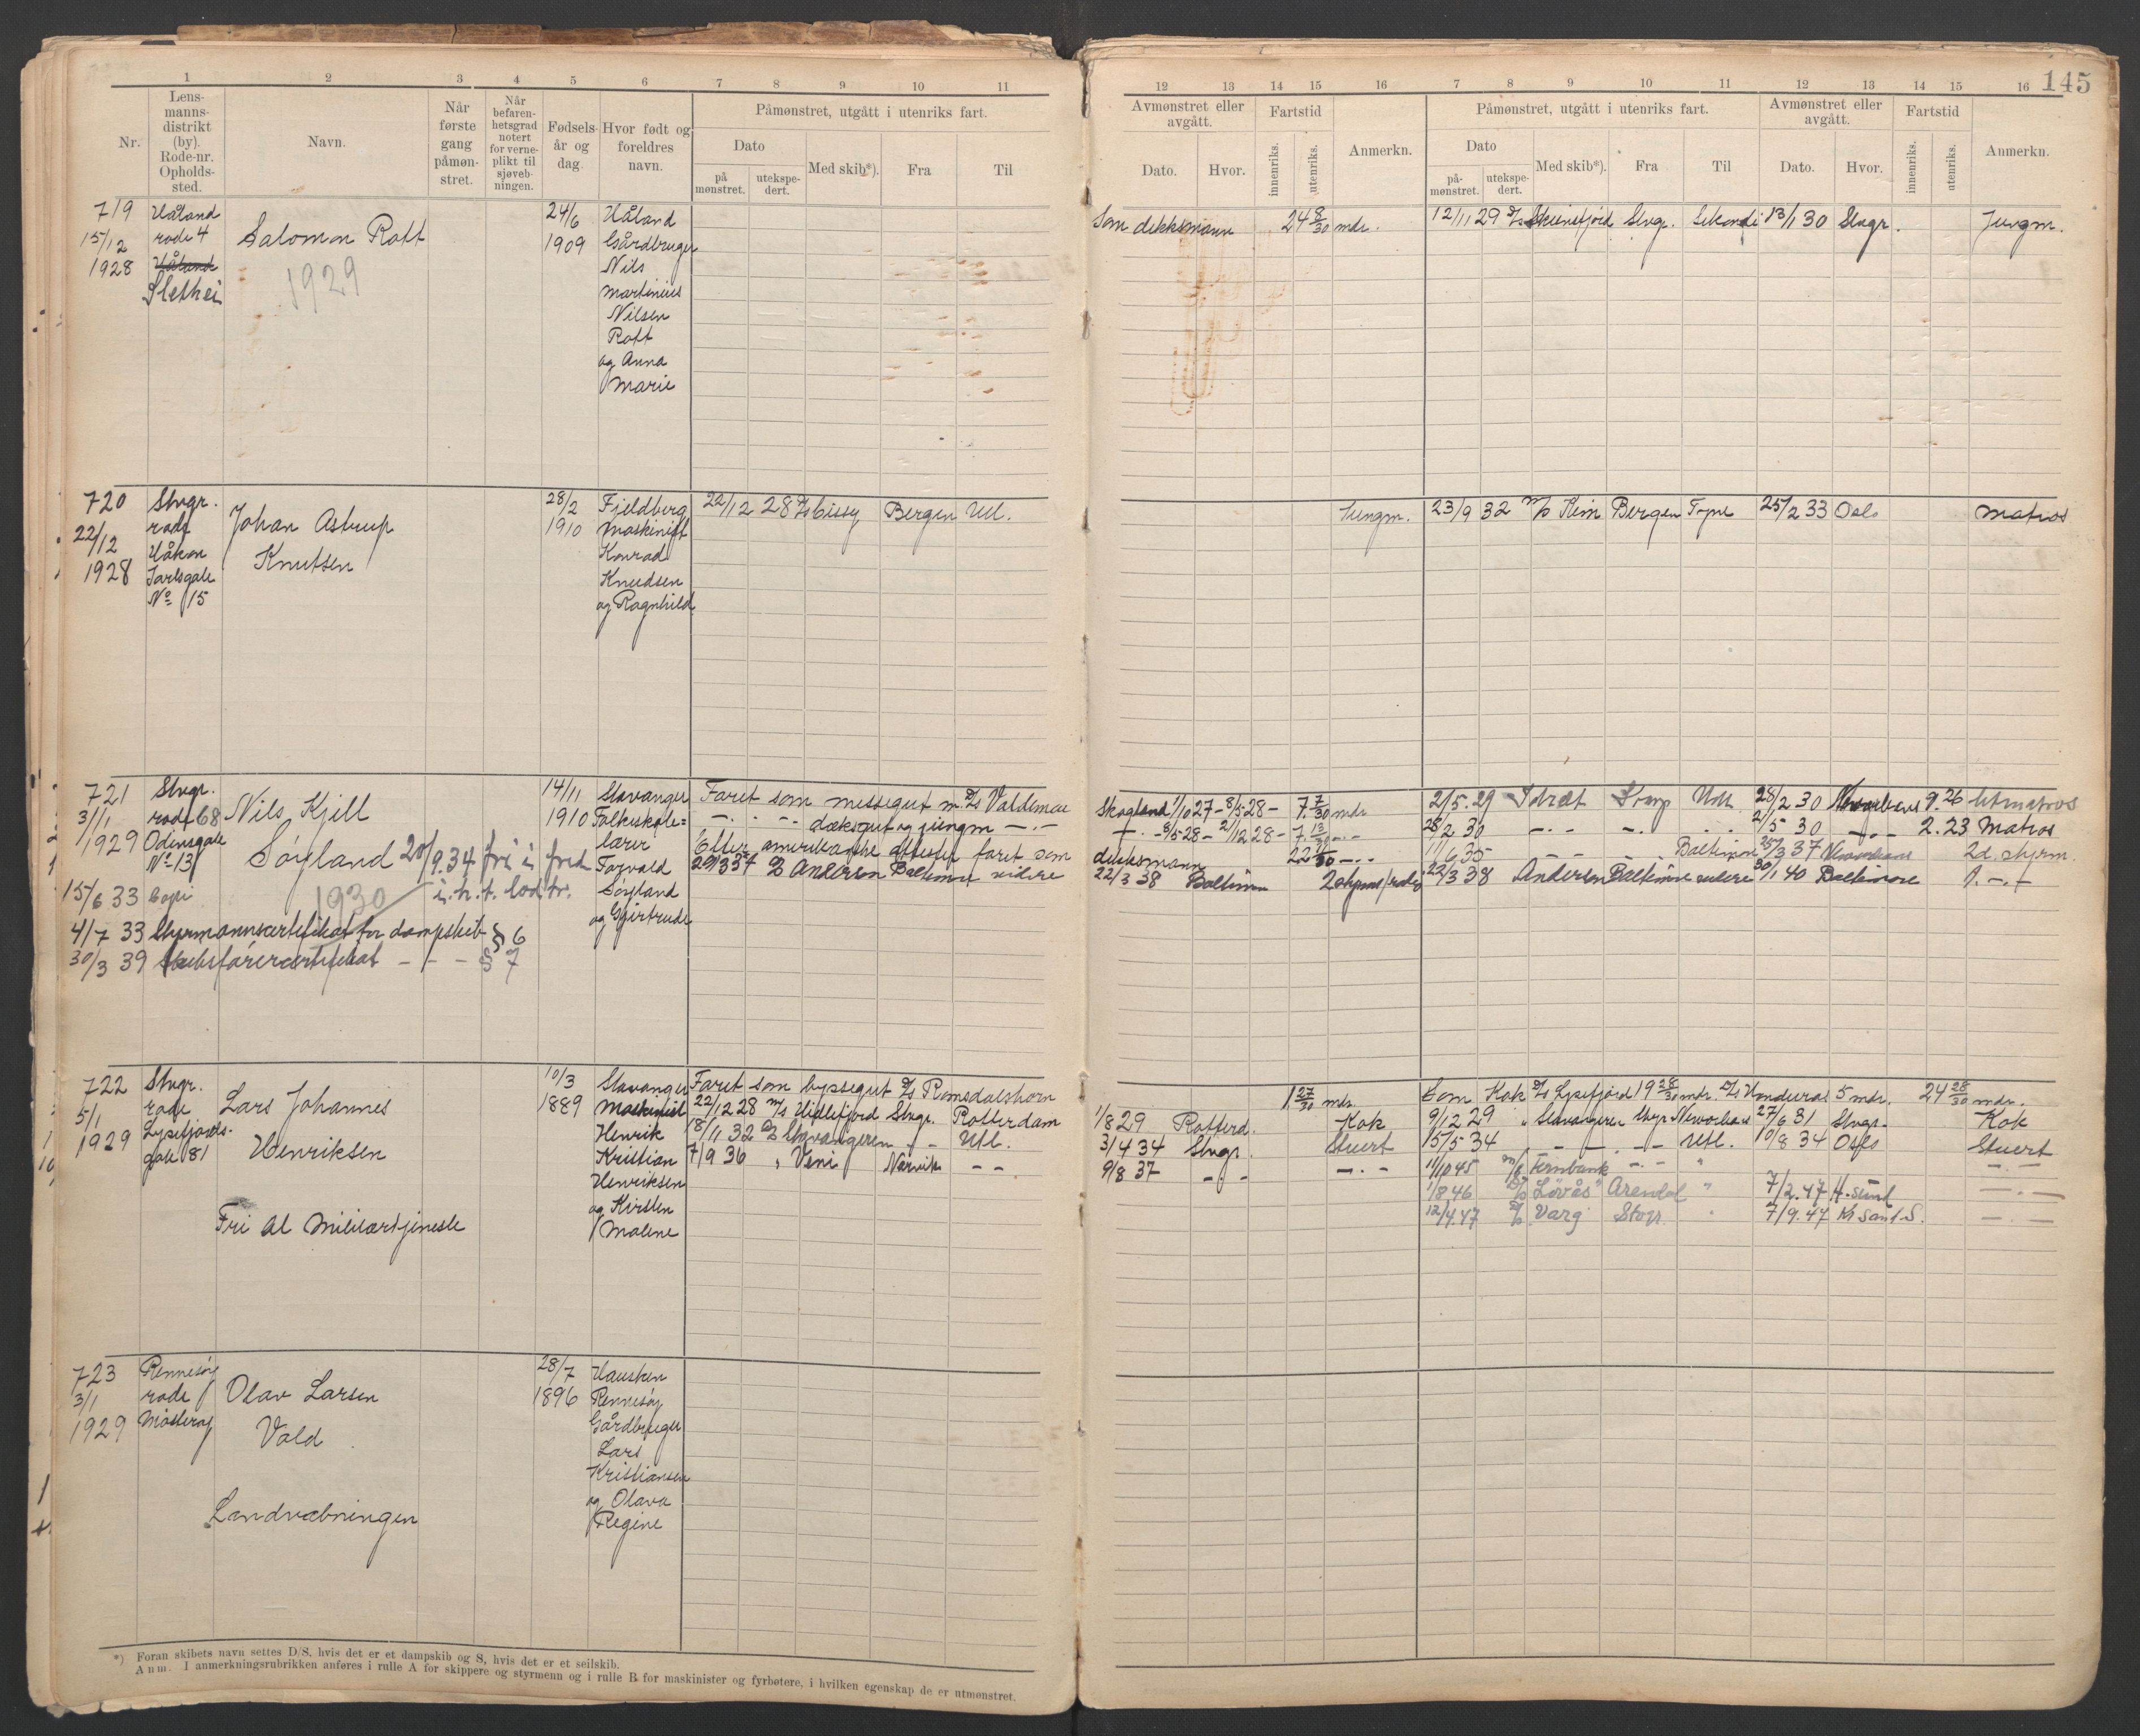 145
1 2 3 4 5 6 7 8 9 10 11
Nr.
Lens-
manns-
distrikt
(by).
Rode-nr.
Opholds-
sted.
Navn.
Når
første
gang
påmøn-
stret.
Når
befaren-
hetsgrad
notert
for verne-
plikt til
sjøveb-
ningen.
Fødsels-
år og
dag.
Hvor født og
foreldres
navn.
Påmønstret, utgått i utenriks fart.
Dato
på
mønstret.
utekspe-
dert.
Med skib*).
Fra
Til
12 13 14 15 16 7 8 9 10 11 12 13 14 15 16
Avmønstret eller
avgått.
Dato.
Hvor.
Fartstid
innenriks.
utenriks.
Anmerkn.
Påmønstret, utgått i utenriks fart.
Dato
på-
mønstret.
utekspe-
dert.
Med skib*).
Fra
Til
Avmønstret eller
avgått.
Dato.
Hvor.
Fartstid
innenriks.
utenriks.
Anmerkn.
719
15/12
1928
Håland
rode 4
Håland
Slethei
Salomon Rott
1929
24/6
1909
Håland
Gårdbruger
Nils
Martinius
Nilsen
Rott
og Anna
Marie
Som dekksmann 24 8/30 mdr. 12/11 29 D/S Skiensfjord Stvgr. Sekondi 13/1 30 Stvgr. Jungm.
720
22/12
1928
Stvgr.
rode
Håkon
Jarlsgate
No 15
Johan Astrup
Knutsen
28/2
1910
Fjeldberg
Maskinist
Konrad
Knudsen
og Ragnhild
22/12 28 D/S Cissy Bergen Utl.
Jungm. 23/9 32 M/S Kim Bergen Tyne 25/2 33 Oslo Matros
721
3/1
1929
Stvgr.
rode 68
Odinsgate
No 13
Nils Kjell
Sørland 20/9.34 fri i fred
i.h.t. lod.tr.
1930
15/6 33 Copi
4/7 33 Styrmannscertifikat for dampskib § 6
30/3 39 Skibsførercertifikat - - - § 7
14/11
1910
Stavanger
Folkeskole=
lærer
Torvald
Sørland
og Gjertrude
Faret som messegut m. D/S Valdemar
— . — dæksgut og jungm — . —
Efter amerikanske attester faret som
29/3 37 D/S Anderson Baltimore videre
Skogland 1/10 27 - 8/5 28 - 7 7/30 mdr. 2/5.29 Idræt Krarp Utl. 28/2 30 Neworleans 9.26 Letmatros
— . - 8/5 28 - 21/12 28 - 7. 13/30 - . - 28/2 30 — . — 21/5 30 — . — 2.23 Matros
dekksmann 22 - . - 11/6 35 — — — Baltimore 25/3 37 Neworleans 2d. styrm.
22/3 38 Baltimore 22/3 38 Anderson Baltimore videre 30/1 40 Baltimore 1. — . —
722
5/1
1929
Stvgr.
rode
Lysefjords-
gate 81
Lars Johannes
Henriksen
Fri al militærtjeneste
10/3
1889
Stavanger
Maskinist
Henrik
Kristian
Henriksen
og Kirsten
Malene
Faret som byssegut D/S Romsdalshorn
22/12 28 M/S Hidlefjord Stvgr. Rotterdam
18/11 32 D/S Stavangeren - - Utl.
7/9 36 " Veni Narvik - -
1. 27/30 mdr. Som Kok D/S Lysefjord 19 28/30 mdr. D/S Honduras 5 mdr. 24 28/30 mdr.
1/8 29 Rotterd. Kok 9/12 29 " Stavangeren Stvgr. Neworleans 27/6 31 Stvgr. Kok
31/4 34 Stvgr. Stuert 15/5 34 " — . — — Utl. 10/8 34 Oslo Stuert
9/8 37 — . — — . — 11/10 45 M/S Fernbank — . — " — . —
1/8 46 D/S "Lovås" Arendal " 7/2.47 H.sund — . —
12/4.47 D/S Varg Stvgr. " 7/9.47 Kr Sand S. — . —
723
3/1
1929
Rennesøy
rode
Mosterøy
Olav Larsen
Vold
Landvæbningen
28/7
1896
Hausken
Rennesøy
Gårdbruger
Lars
Kristiansen
og Olava
Regine
*) Foran skibets navn settes D/S, hvis det er et dampskib og S, hvis det er et seilskib.
Anm. I anmerkningsrubrikken anføres i rulle A for skippere og styrmenn og i rulle B for maskinister og fyrbøtere, i hvilken egenskap de er utmønstret.